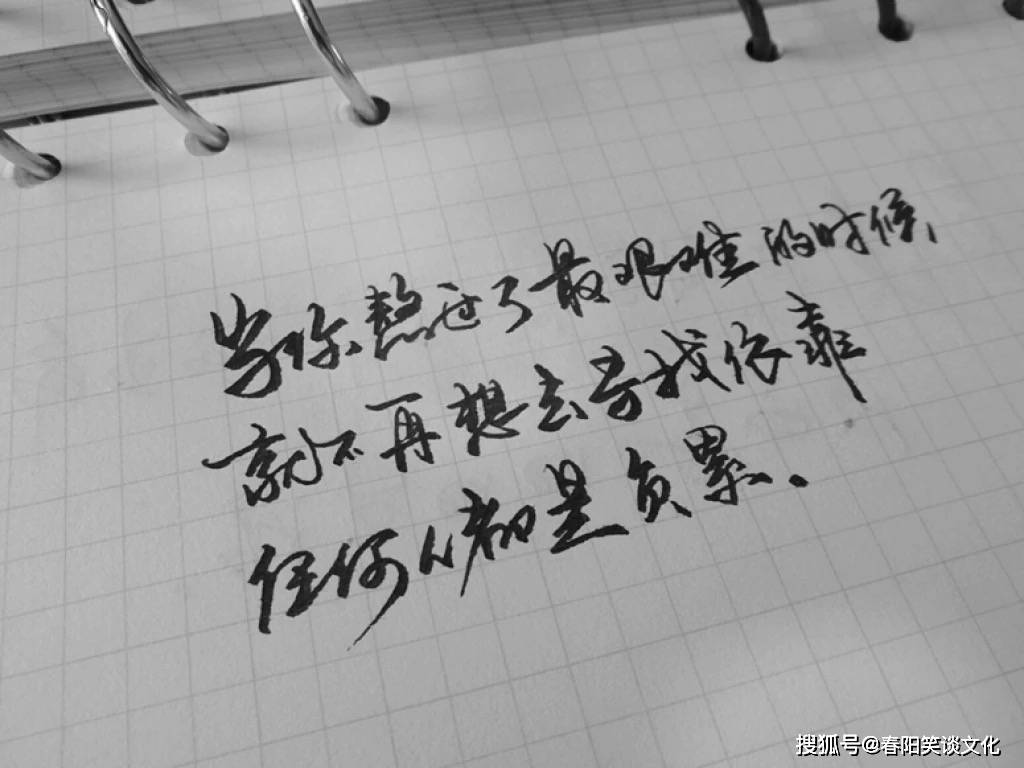 当你熬过了最艰难的时候,
就不再想去寻找依靠
任何人都是负累.
搜狐号@春阳笑谈文化